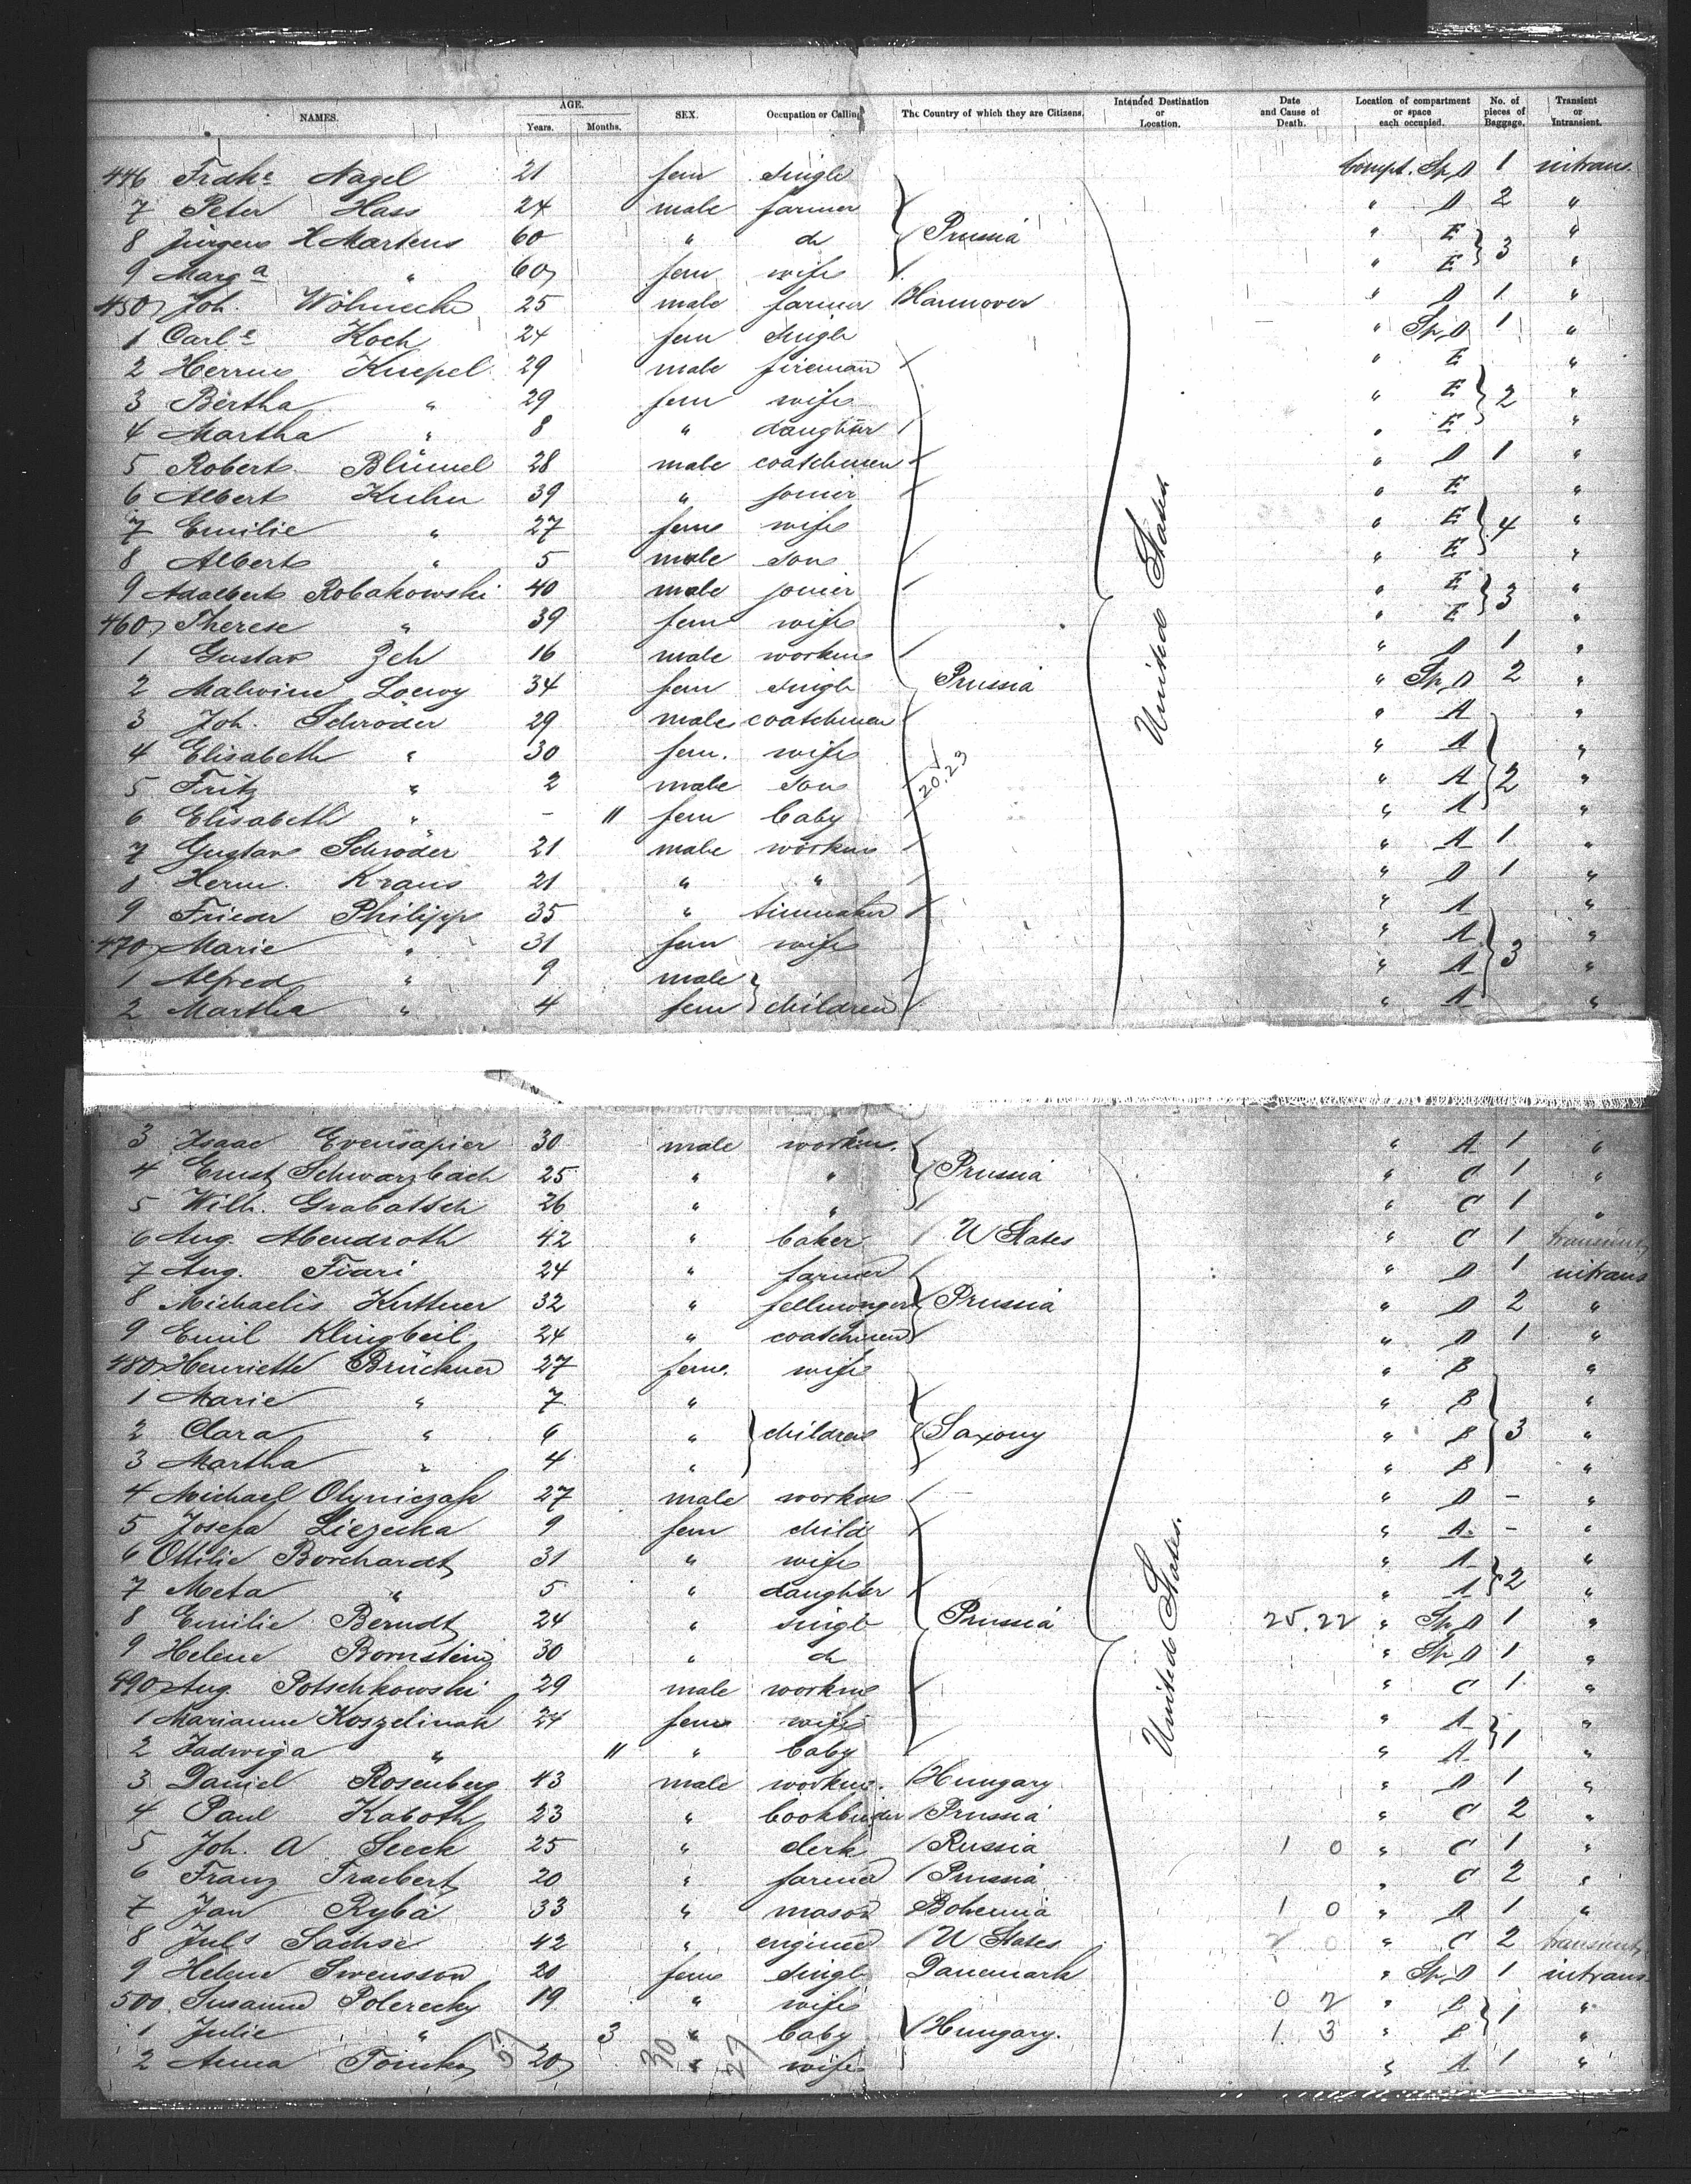 NAMES. AGE. Years. Months. SEX. Occupation or Calling The Country of which they are Citizens. Intended Destination or Location. Date and Cause of Death. Location of compartment or space each occupied. No. of pieces of Baggage. Transient or Intransient.
446 Fridke Nagel 21 fem single Compt. Sp. D 1 intrans.
7 Peter Hass 24 male farmer " D 2 "
8 Jürgen H Martens 60 " do Prussia " E 3 "
9 Marga " 60 fem wife " E "
450 Joh. Wöhnecke 25 male farmer Hannover " D 1 "
1 Carle Koch 24 fem single " Sp. D 1 "
2 Herrm Knepel 29 male fireman " E "
3 Bertha " 29 fem wife " E 2 "
4 Martha " 8 " daughter " E "
5 Robert Blümel 28 male coatchmen " D 1 "
6 Albert Kuhn 39 " joiner " E "
7 Emilie " 27 fem wife " E 4 "
8 Albert " 5 male son " E "
9 Adalbert Robakowski 40 male joiner " E 3 "
460 Therese " 39 fem wife " E "
1 Gustav Zeh 16 male workm " D 1 "
2 Malwine Loewy 34 fem single Prussia United States " Sp. D 2 "
3 Joh. Schröder 29 male coatchmen " A "
4 Elisabeth " 30 fem. wife " A "
5 Fritz " 2 male son 20.23 " A 2 "
6 Elisabeth " - 11 fem baby " A "
7 Gustav Schröder 21 male workm " A 1 "
8 Herm. Kraus 21 " " " D 1 "
9 Frieder Philipp 35 " tinmaker " A "
470 Marie " 31 fem wife " A "
1 Alfred " 9 male " A 3 "
2 Martha " 4 fem children " A "
3 Isaac Evensapier 30 male workm. " A 1 "
4 Ernst Schwarzbach 25 " " Prussia " C 1 "
5 Wilh. Grabatsch 26 " " " C 1 "
6 Aug. Abendroth 42 " baker U States " C 1 transient
7 Aug. Fiari 24 " farmer " D 1 intrans
8 Michaelis Kuttner 32 " fellmonger Prussia " D 2 "
9 Emil Klingbeil 24 " coatchmen " D 1 "
480 Henriette Brückner 27 fem. wife " B "
1 Marie " 7 " " B "
2 Clara " 6 " children Saxony " B 3 "
3 Martha " 4 " " B "
4 Michael Olyniczak 27 male workm " D - "
5 Josefa Liezecka 9 fem child " A - "
6 Ottilie Borchardt 31 " wife " A "
7 Meta " 5 " daughter " A 2 "
8 Emilie Berndt 24 " single Prussia 25.22 " Sp. D 1 "
9 Helene Bornstein 30 " do United States. " Sp. D 1 "
490 Aug. Potschkowski 29 male workm " C 1 "
1 Marianne Koszelinak 24 fem wife " A "
2 Jadwiga " 11 " baby " A 1 "
3 Daniel Rosenberg 43 male workm. Hungary " D 1 "
4 Paul Kaboth 23 " bookbinder Prussia " C 2 "
5 Joh. A Seeck 25 " clerk Russia 1 0 " C 1 "
6 Franz Traebert 20 " farmer Prussia " C 2 "
7 Jan Ryba 33 " mason Bohemia 1 0 " D 1 "
8 Juls Sachse 42 " engineer U States 2 0 " C 2 transient
9 Helene Swensson 20 fem single Danemark " Sp. D 1 intrans
500 Susanne Polerecky 19 " wife 0 2 " B 1 "
1 Julie " 3 " baby Hungary. 1 3 " B "
2 Anna Tomko 57 20 30 " 27 wife " A 1 "